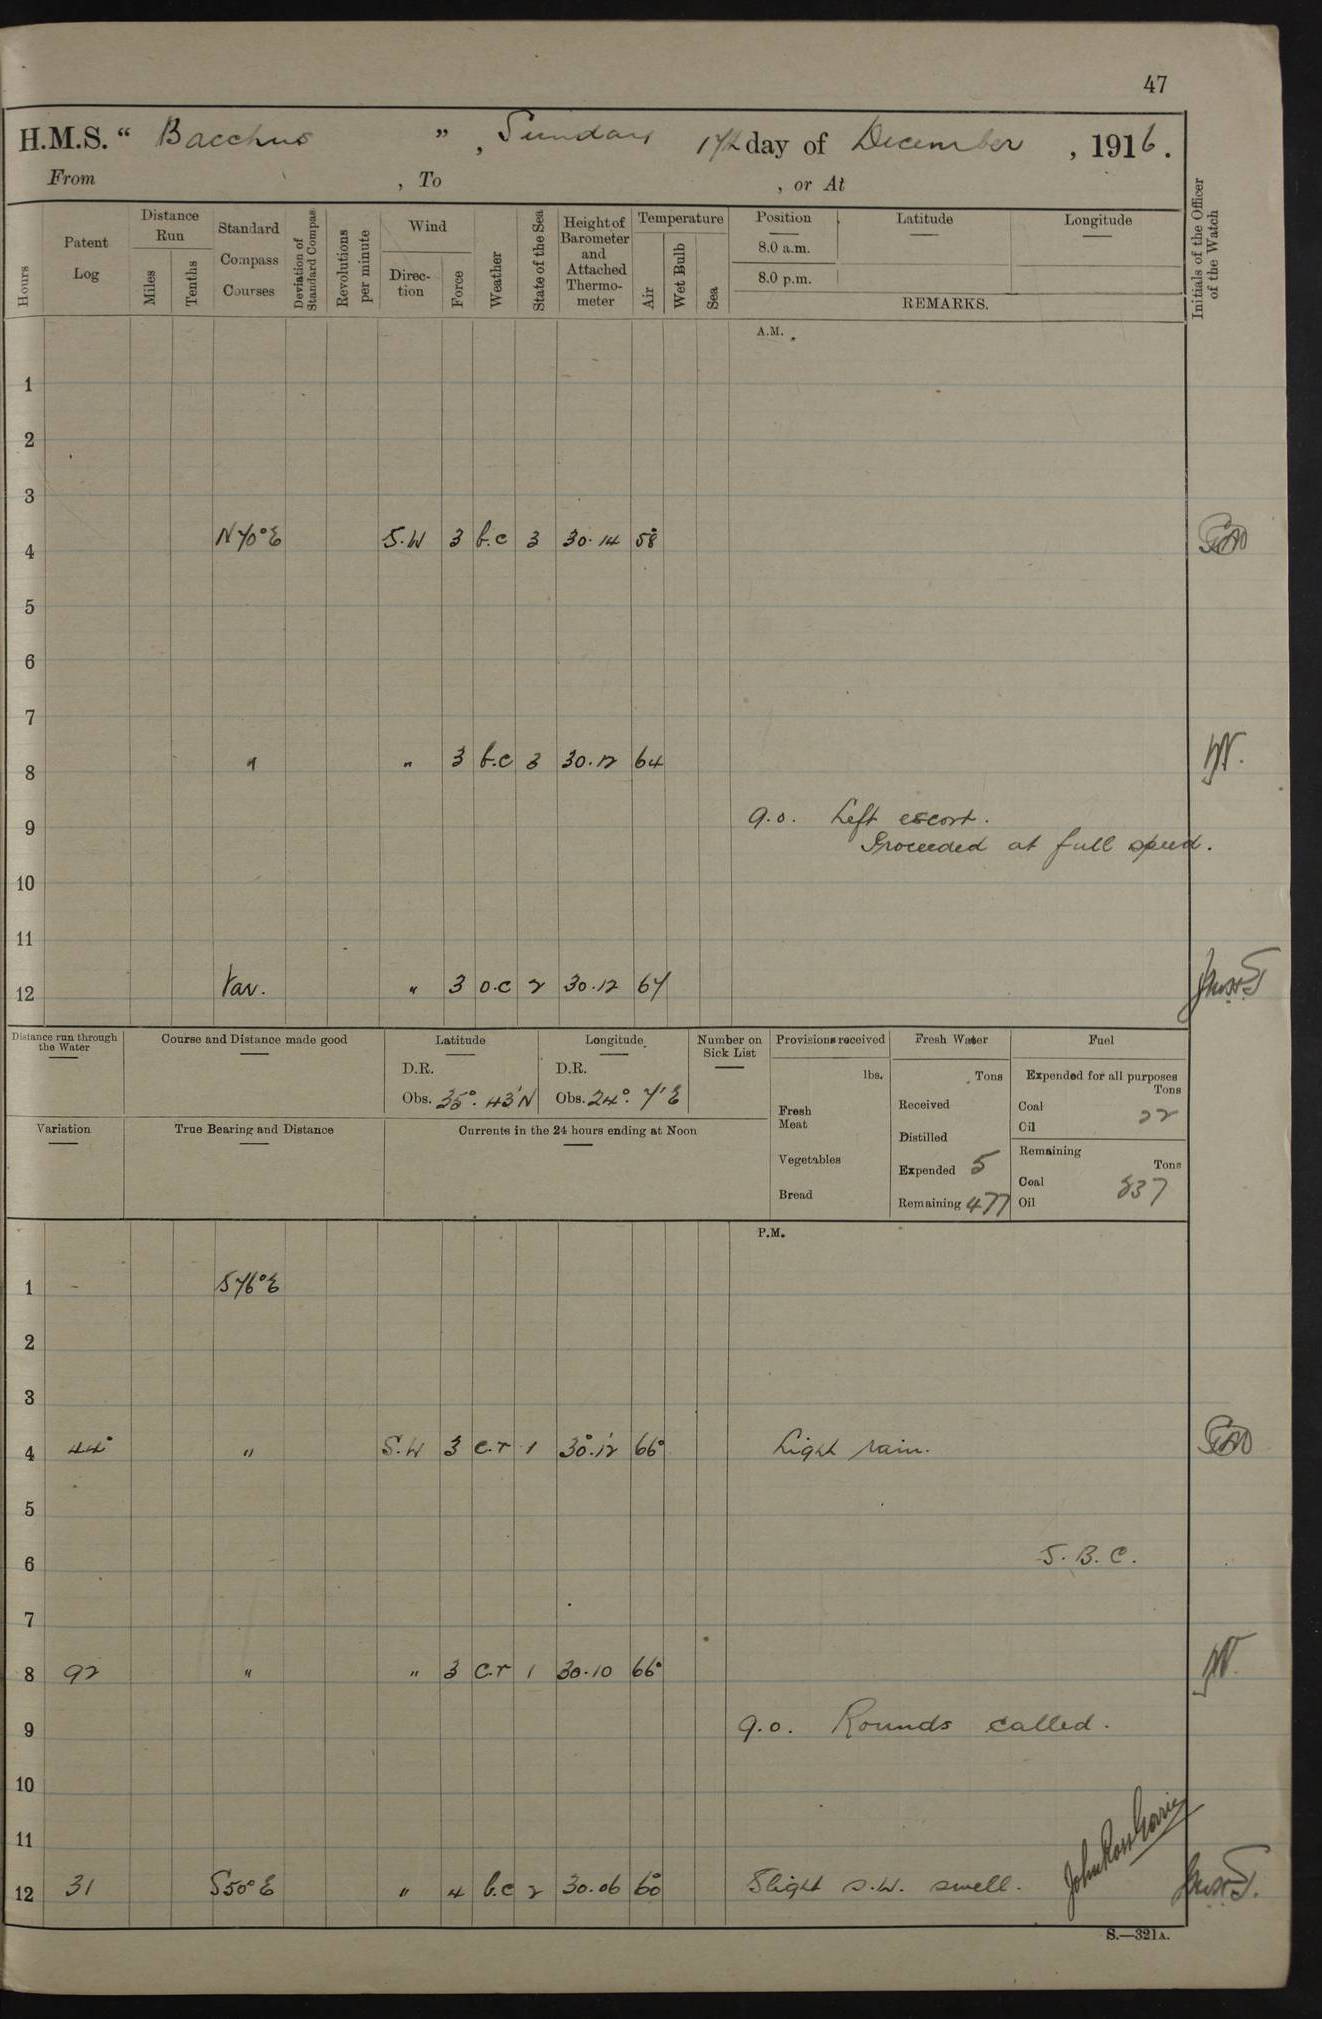 47
H.M.S. “ Bacchus ”, Sunday 17th day of December, 1916.
From , To , or At
Hours
Patent Log
Distance Run
Miles
Tenths
Standard Compass Courses
Deviation of Standard Compass
Revolutions per minute
Wind
Direction
Force
Weather
State of the Sea
Height of Barometer and Attached Thermometer
Temperature
Air
Wet Bulb
Sea
Position Latitude Longitude
8.0 a.m.
8.0 p.m.
REMARKS.
Initials of the Officer of the Watch
A.M.
1
2
3
4 N70°E S.W 3 b.c 3 30.14 58°
5
6
7
8 " " 3 b.c 3 30.12 64
9.0. Left escort.
9 Proceeded at full speed.
10
11
12 Var. " 3 o.c 2 30.12 67
Distance run through the Water
Course and Distance made good
Latitude
D.R.
Obs. 35°. 43'N
Longitude
D.R.
Obs. 24°. 7'E
Number on Sick List
Provisions received
lbs.
Fresh Meat
Vegetables
Bread
Fresh Water
Tons
Received
Distilled
Expended 5
Remaining 477
Fuel
Expended for all purposes
Tons
Coal 22
Oil
Remaining
Tons
Coal 837
Oil
Variation
True Bearing and Distance
Currents in the 24 hours ending at Noon
P.M.
1 S76°E
2
3
4 44 " S.W 3 c.r 1 30.12 66° Light rain.
5
6 S.B.C.
7
8 92 " " 3 c.r 1 30.10 66°
9 9.0. Rounds called.
10
11
12 31 S50°E " 4 b.c 2 30.06 60° Slight S.W. swell.
John Ross Gorrie
S.—321A.